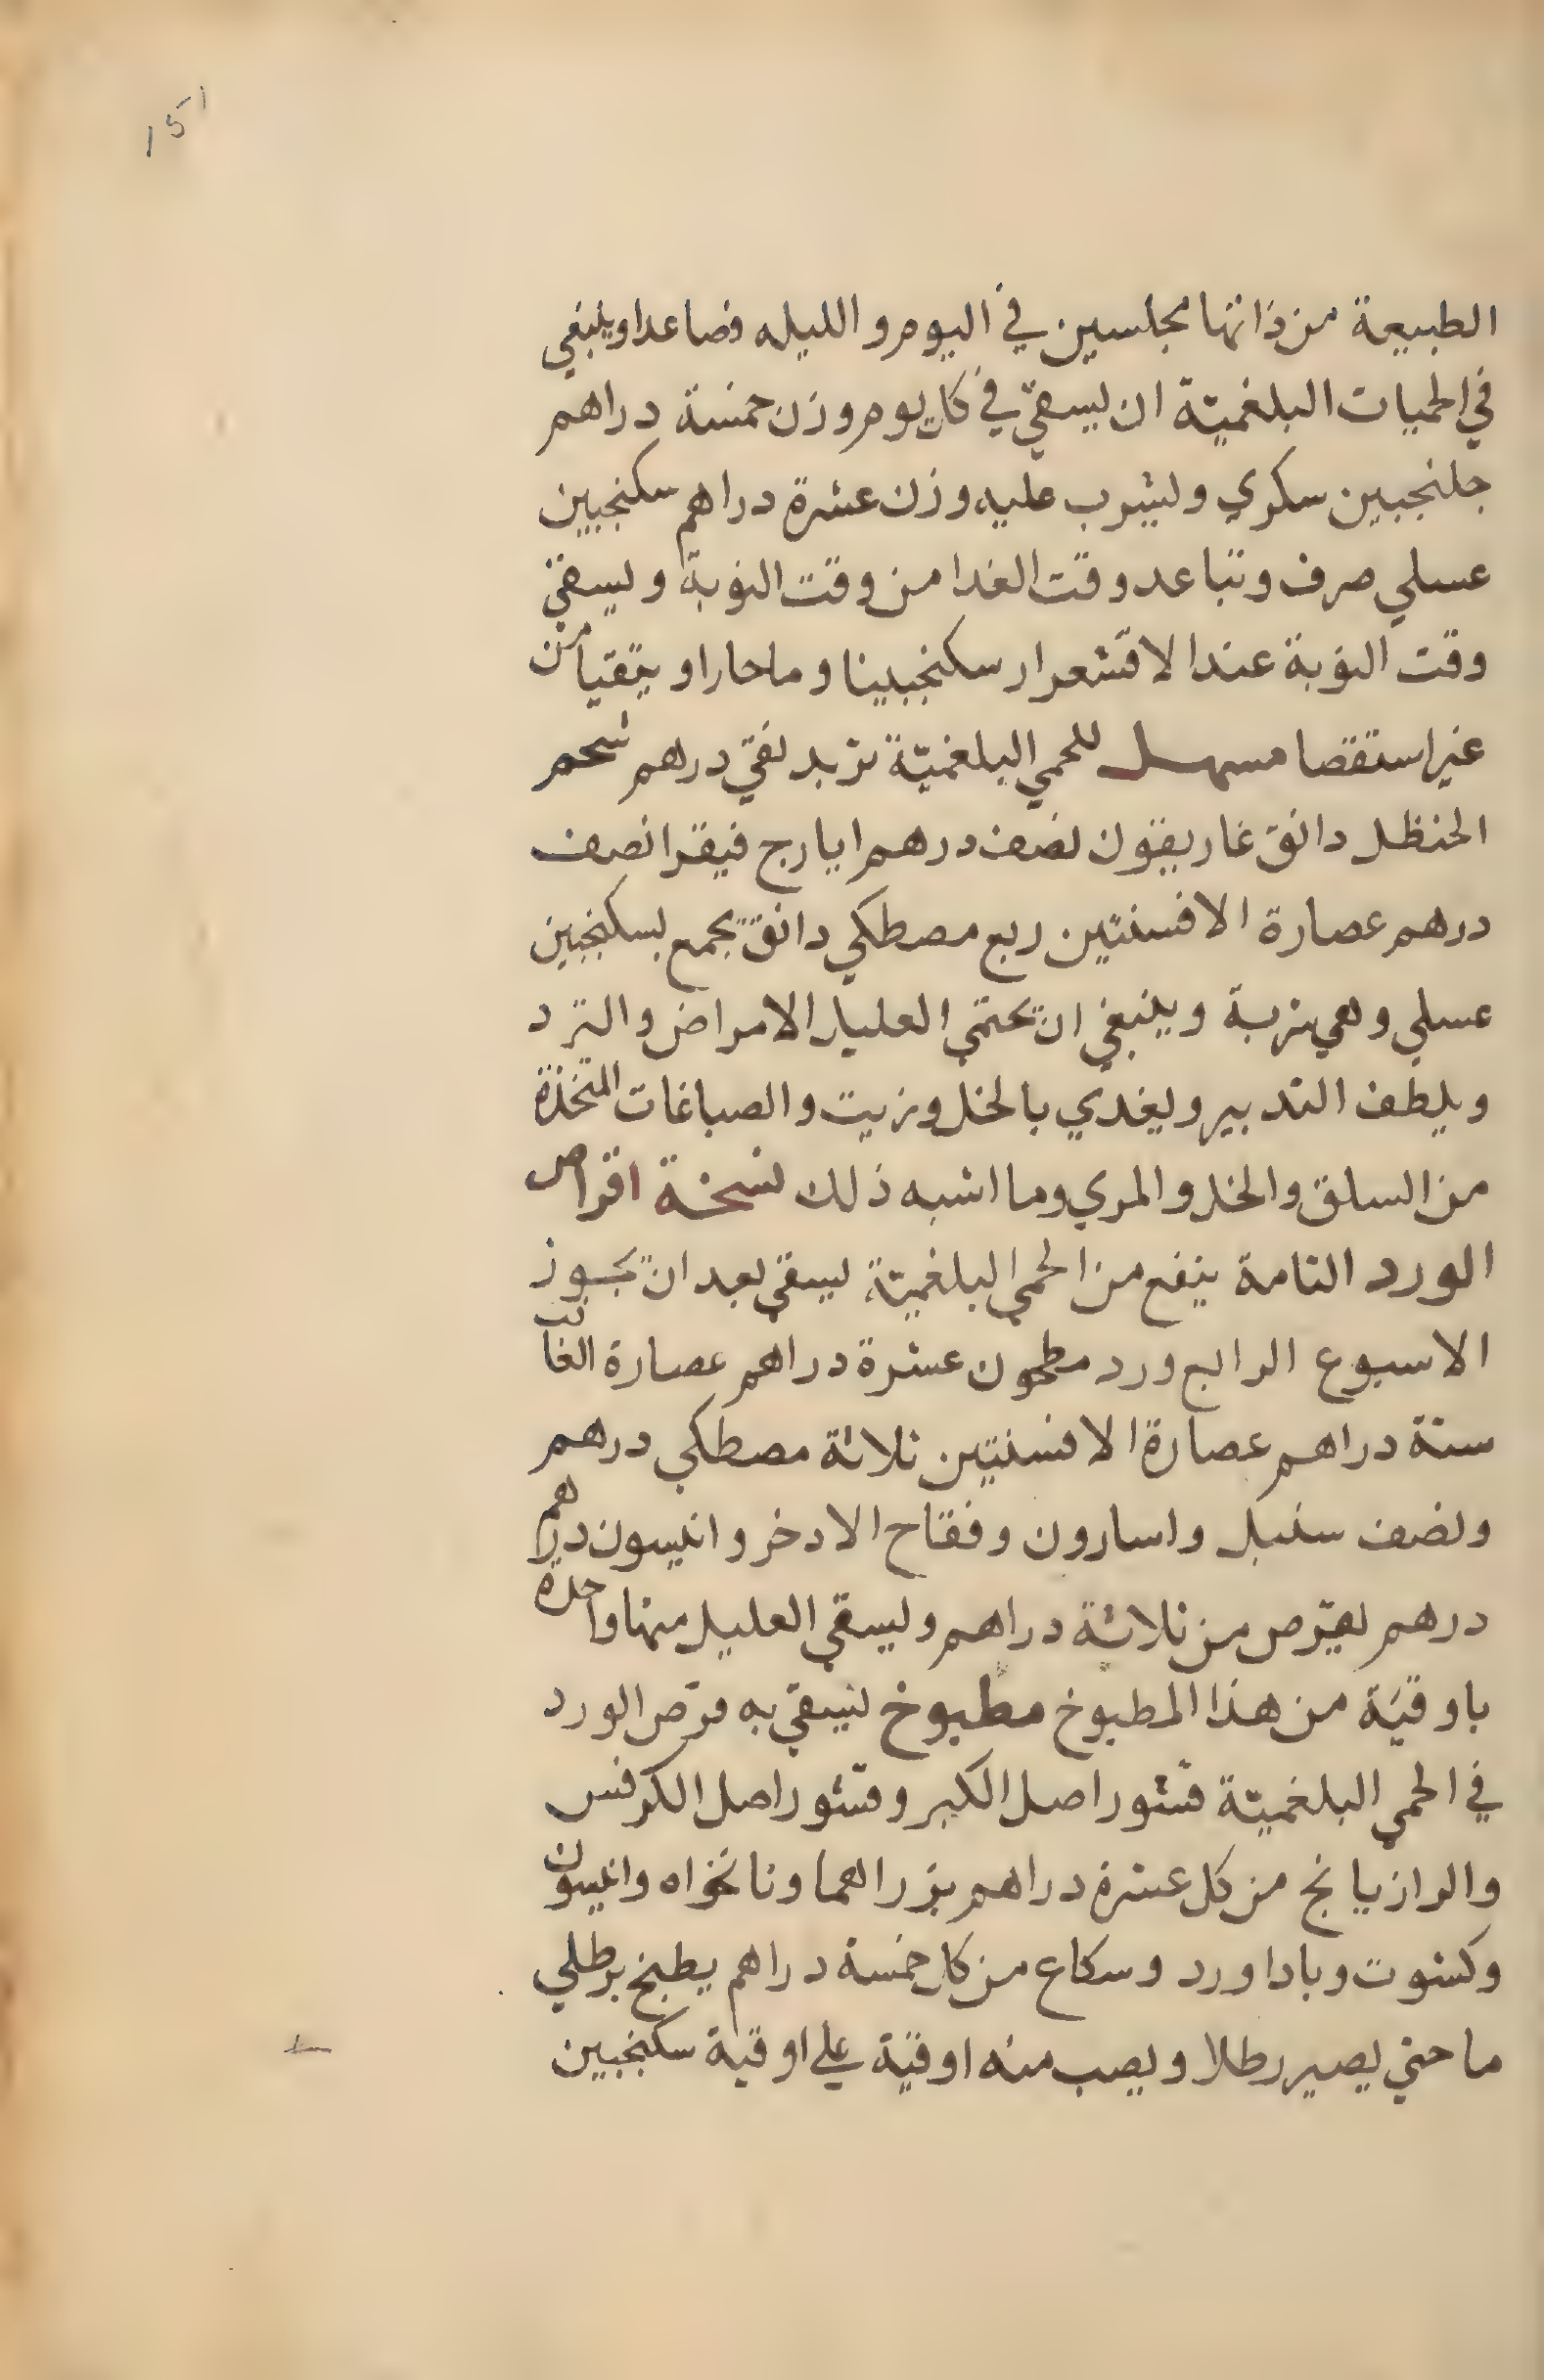 151
الطبيعة من ذاتها مجلسين في اليوم والليله فصاعدا وينبغي
في الحميات البلغميّة ان يسقيّ في كل يوم وزن خمسة دراهم
جلنجبين سكري وليشرب عليه وزن عشرة دراهم سكنجبين
عسلي صرف وتباعد وقت الغدا من وقت النوبة ويسقي
وقت النوبة عند الاقشعرار سكنجبينا وما حارا ويتقيا من
غير استقصا مسهل للحمي البلغميّة تربد نقيّ درهم شحم
الحنظل دانق غاريقون نصف درهم ايارج فيقرا نصف
درهم عصارة الافسنتين ربع مصطكي دانق يجمع بسكنجبين
عسلي وهي شربة وينبغي ان يحتمي العليل الامراض والترد
ويلطف التدبير ويغدي بالخل وزيت والصباغات المتخذة
من السلق والخل والمري وما اشبه ذلك نسخة اقراص
الورد التامة ينفع من الحمي البلغميّة يسقي بعد ان يجوز
الاسبوع الرابع ورد مطحون عشرة دراهم عصارة الغافت
ستة دراهم عصارة الافسنتين ثلاثة مصطكي درهم
ونصف سنبل واسارون وفقاح الادخر وانيسون درهم
درهم يقرّص من ثلاثة دراهم وليسقي العليل منها واحدة
باوقيّة من هذا المطبوخ مطبوخ ليسقيّ به قرص الورد
في الحمي البلغميّة قشور اصل الكبر وقشور اصل الكرفس
والرازيانج من كل عشرة دراهم بزراهما ونانخواه وانيسون
وكشوت وباداورد وسكاع من كل خمسة دراهم يطبخ برطلي
ما حتي يصير رطلا ويصب منه اوقيّة علي اوقية سكنجبين